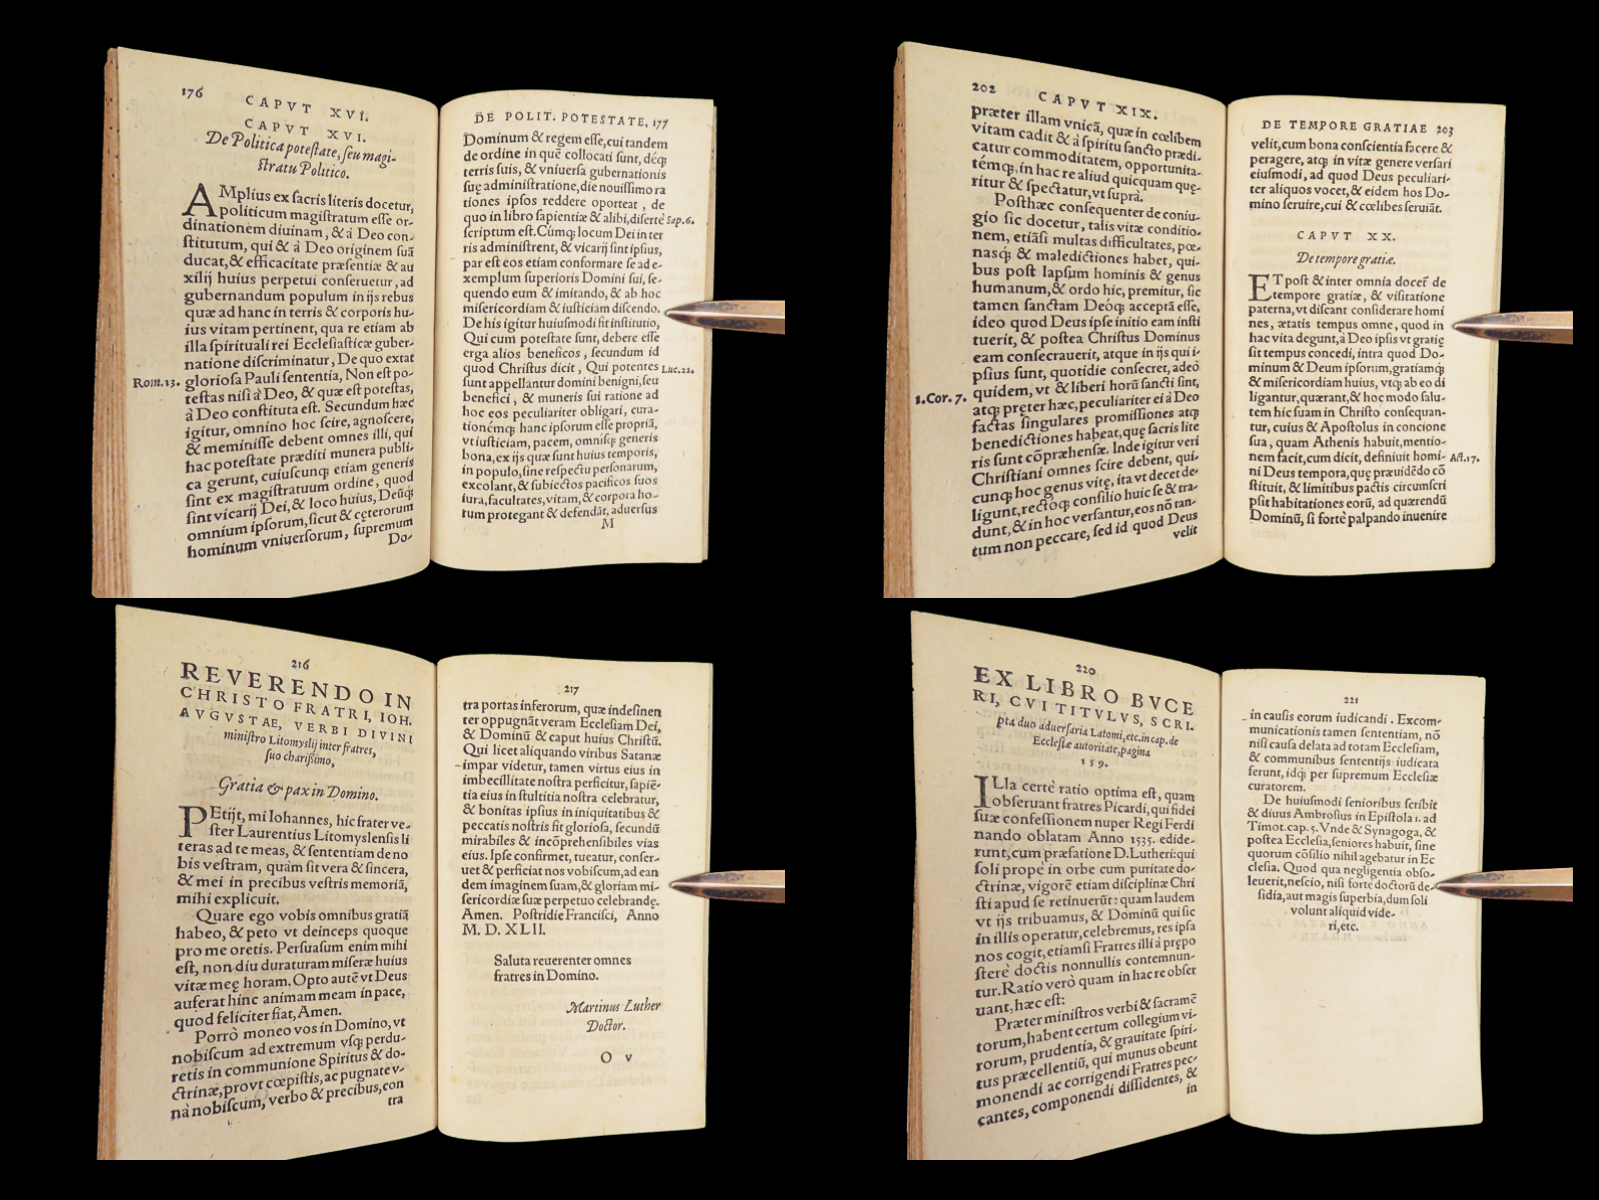 176
CAPVT XVI.
CAPVT XVI.
De Politica potestate, seu magi-
stratu Politico.
AMplius ex sacris literis docetur,
politicum magistratum esse or-
dinationem diuinam, & à Deo con-
stitutum, qui & à Deo originem suã
ducat, & efficacitate præsentiæ & au
xilij huius perpetui conseruetur, ad
gubernandum populum in ijs rebus
quæ ad hanc in terris & corporis hu-
ius vitam pertinent, qua re etiam ab
illa spirituali rei Ecclesiasticæ guber-
natione discriminatur, De quo extat
Rom. 13. gloriosa Pauli sententia, Non est po-
testas nisi à Deo, & quæ est potestas,
à Deo constituta est. Secundum hæc
igitur, omnino hoc scire, agnoscere,
& meminisse debent omnes illi, qui
hac potestate præditi munera publi-
ca gerunt, cuiuscunq; etiam generis
sint ex magistratuum ordine, quod
sint vicarij Dei, & loco huius, Deúq;
omnium ipsorum, sicut & cęterorum
hominum vniuersorum, supremum
Do-
DE POLIT. POTESTATE. 177
Dominum & regem esse, cui tandem
de ordine in quẽ collocati sunt, déq;
terris suis, & vniuersa gubernationis
suę administratione, die nouissimo ra
tiones ipsos reddere oporteat, de
quo in libro sapientiæ & alibi, disertè Sap. 6.
scriptum est. Cùmq; locum Dei in ter
ris administrent, & vicarij sint ipsius,
par est eos etiam conformare se ad e-
xemplum superioris Domini sui, se-
quendo eum & imitando, & ab hoc
misericordiam & iusticiam discendo.
De his igitur huiusmodi fit institutio,
Qui cum potestate sunt, debere esse
erga alios beneficos, secundum id
quod Christus dicit, Qui potentes Luc. 22.
sunt appellantur domini benigni, seu
benefici, & muneris sui ratione ad
hoc eos peculiariter obligari, cura-
tionémq; hanc ipsorum esse propriã,
vt iusticiam, pacem, omnisq; generis
bona, ex ijs quæ sunt huius temporis,
in populo, sine respectu personarum,
excolant, & subiectos pacificos suos
iura, facultates, vitam, & corpora ho-
tum protegant & defendãt, aduersus
M
202
CAPVT XIX.
præter illam vnicã, quæ in cœlibem
vitam cadit & à spiritu sancto prædi-
catur commoditatem, opportunita-
témq;, in hac re aliud quicquam quę-
ritur & spectatur, vt suprà.
Posthæc consequenter de coniu-
gio sic docetur, talis vitæ conditio-
nem, etiãsi multas difficultates, pœ-
nasq; & maledictiones habet, qui-
bus post lapsum hominis & genus
humanum, & ordo hic, premitur, sic
tamen sanctam Deóq; acceptã esse,
ideo quod Deus ipse initio eam insti
tuerit, & postea Christus Dominus
eam consecrauerit, atque in ijs qui i-
psius sunt, quotidie consecret, adeò
1. Cor. 7. quidem, vt & liberi horũ sancti sint,
atq; pręter hæc, peculiariter ei à Deo
factas singulares promissiones atq;
benedictiones habeat, quę sacris lite
ris sunt cõpræhensæ. Inde igitur veri
Christiani omnes scire debent, qui-
cunq; hoc genus vitę, ita vt decet de-
ligunt, rectóq; consilio huic se & tra-
dunt, & in hoc versantur, eos nõ tan-
tum non peccare, sed id quod Deus
velit
DE TEMPORE GRATIAE 203
velit, cum bona conscientia facere &
peragere, atq; in vitæ genere versari
eiusmodi, ad quod Deus peculiari-
ter aliquos vocet, & eidem hos Do-
mino seruire, cui & cœlibes seruiãt.
CAPVT XX.
De tempore gratiæ.
ET post & inter omnia docet de
tempore gratiæ, & visitatione
paterna, vt discant considerare homi
nes, ætatis tempus omne, quod in
hac vita degunt, à Deo ipsis vt gratię
sit tempus concedi, intra quod Do-
minum & Deum ipsorum, gratiamq;
& misericordiam huius, vtq; ab eo di
ligantur, quærant, & hoc modo salu-
tem hic suam in Christo consequan-
tur, cuius & Apostolus in concione
sua, quam Athenis habuit, mentio-
nem facit, cum dicit, definiuit homi- Act. 17.
ni Deus tempora, quę præuidẽdo cõ
stituit, & limitibus pactis circumscri
psit habitationes eorũ, ad quærendũ
Dominũ, si fortè palpando inuenire
216
REVERENDO IN
CHRISTO FRATRI, IOH.
AVGVSTAE, VERBI DIVINI
ministro Litomyslij inter fratres,
suo charißimo,
Gratia & pax in Domino.
PEtijt, mi Iohannes, hic frater ve-
ster Laurentius Litomyslensis li
teras ad te meas, & sententiam de no
bis vestram, quàm sit vera & sincera,
& mei in precibus vestris memoriã,
mihi explicuit.
Quare ego vobis omnibus gratiã
habeo, & peto vt deinceps quoque
pro me oretis. Persuasum enim mihi
est, non diu duraturam miseræ huius
vitæ meę horam. Opto autẽ vt Deus
auferat hinc animam meam in pace,
quod feliciter fiat, Amen.
Porrò moneo vos in Domino, vt
nobiscum ad extremum vsq; perdu-
retis in communione Spiritus & do-
ctrinæ, provt cœpistis, ac pugnate v-
nà nobiscum, verbo & precibus, con
tra
217
tra portas inferorum, quæ indesinen
ter oppugnãt veram Ecclesiam Dei,
& Dominũ & caput huius Christũ.
Qui licet aliquando viribus Satanæ
impar videtur, tamen virtus eius in
imbecillitate nostra perficitur, sapiẽ-
tia eius in stultitia nostra celebratur,
& bonitas ipsius in iniquitatibus &
peccatis nostris fit gloriosa, secundũ
mirabiles & incõprehensibiles vias
eius. Ipse confirmet, tueatur, conser-
uet & perficiat nos vobiscum, ad ean
dem imaginem suam, & gloriam mi-
sericordiæ suæ perpetuo celebrandę.
Amen. Postridie Francisci, Anno
M. D. XLII.
Saluta reuerenter omnes
fratres in Domino.
Martinus Luther
Doctor.
O v
220
EX LIBRO BVCE
RI, CVI TITVLVS, SCRI-
pta duo aduersaria Latomi, etc. in cap. de
Ecclesiæ autoritate, pagina
159.
ILla certè ratio optima est, quam
obseruant fratres Picardi, qui fidei
suæ confessionem nuper Regi Ferdi
nando oblatam Anno 1535. edide-
runt, cum præfatione D. Lutheri: qui
soli propè in orbe cum puritate do-
ctrinæ, vigorẽ etiam disciplinæ Chri
sti apud se retinuerũt: quam laudem
vt ijs tribuamus, & Dominũ qui sic
in illis operatur, celebremus, res ipsa
nos cogit, etiamsi Fratres illi à prępo
sterè doctis nonnullis contemnun-
tur. Ratio verò quam in hac re obser
uant, hæc est:
Præter ministros verbi & sacramẽ
torum, habent certum collegium vi-
rorum, prudentia, & grauitate spiri-
tus præcellentiũ, qui munus obeunt
monendi ac corrigendi Fratres pec-
cantes, componendi dissidentes, &
in
221
in causis eorum iudicandi. Excom-
municationis tamen sententiam, nõ
nisi causa delata ad totam Ecclesiam,
& communibus sententijs iudicata
ferunt, idq; per supremum Ecclesiæ
curatorem.
De huiusmodi senioribus scribit
& diuus Ambrosius in Epistola 1. ad
Timot. cap. 5. Vnde & Synagoga, &
postea Ecclesia, seniores habuit, sine
quorum cõsilio nihil agebatur in Ec
clesia. Quod qua negligentia obso-
leuerit, nescio, nisi fortè doctorũ de-
sidia, aut magis superbia, dum soli
volunt aliquid vide-
ri, etc.